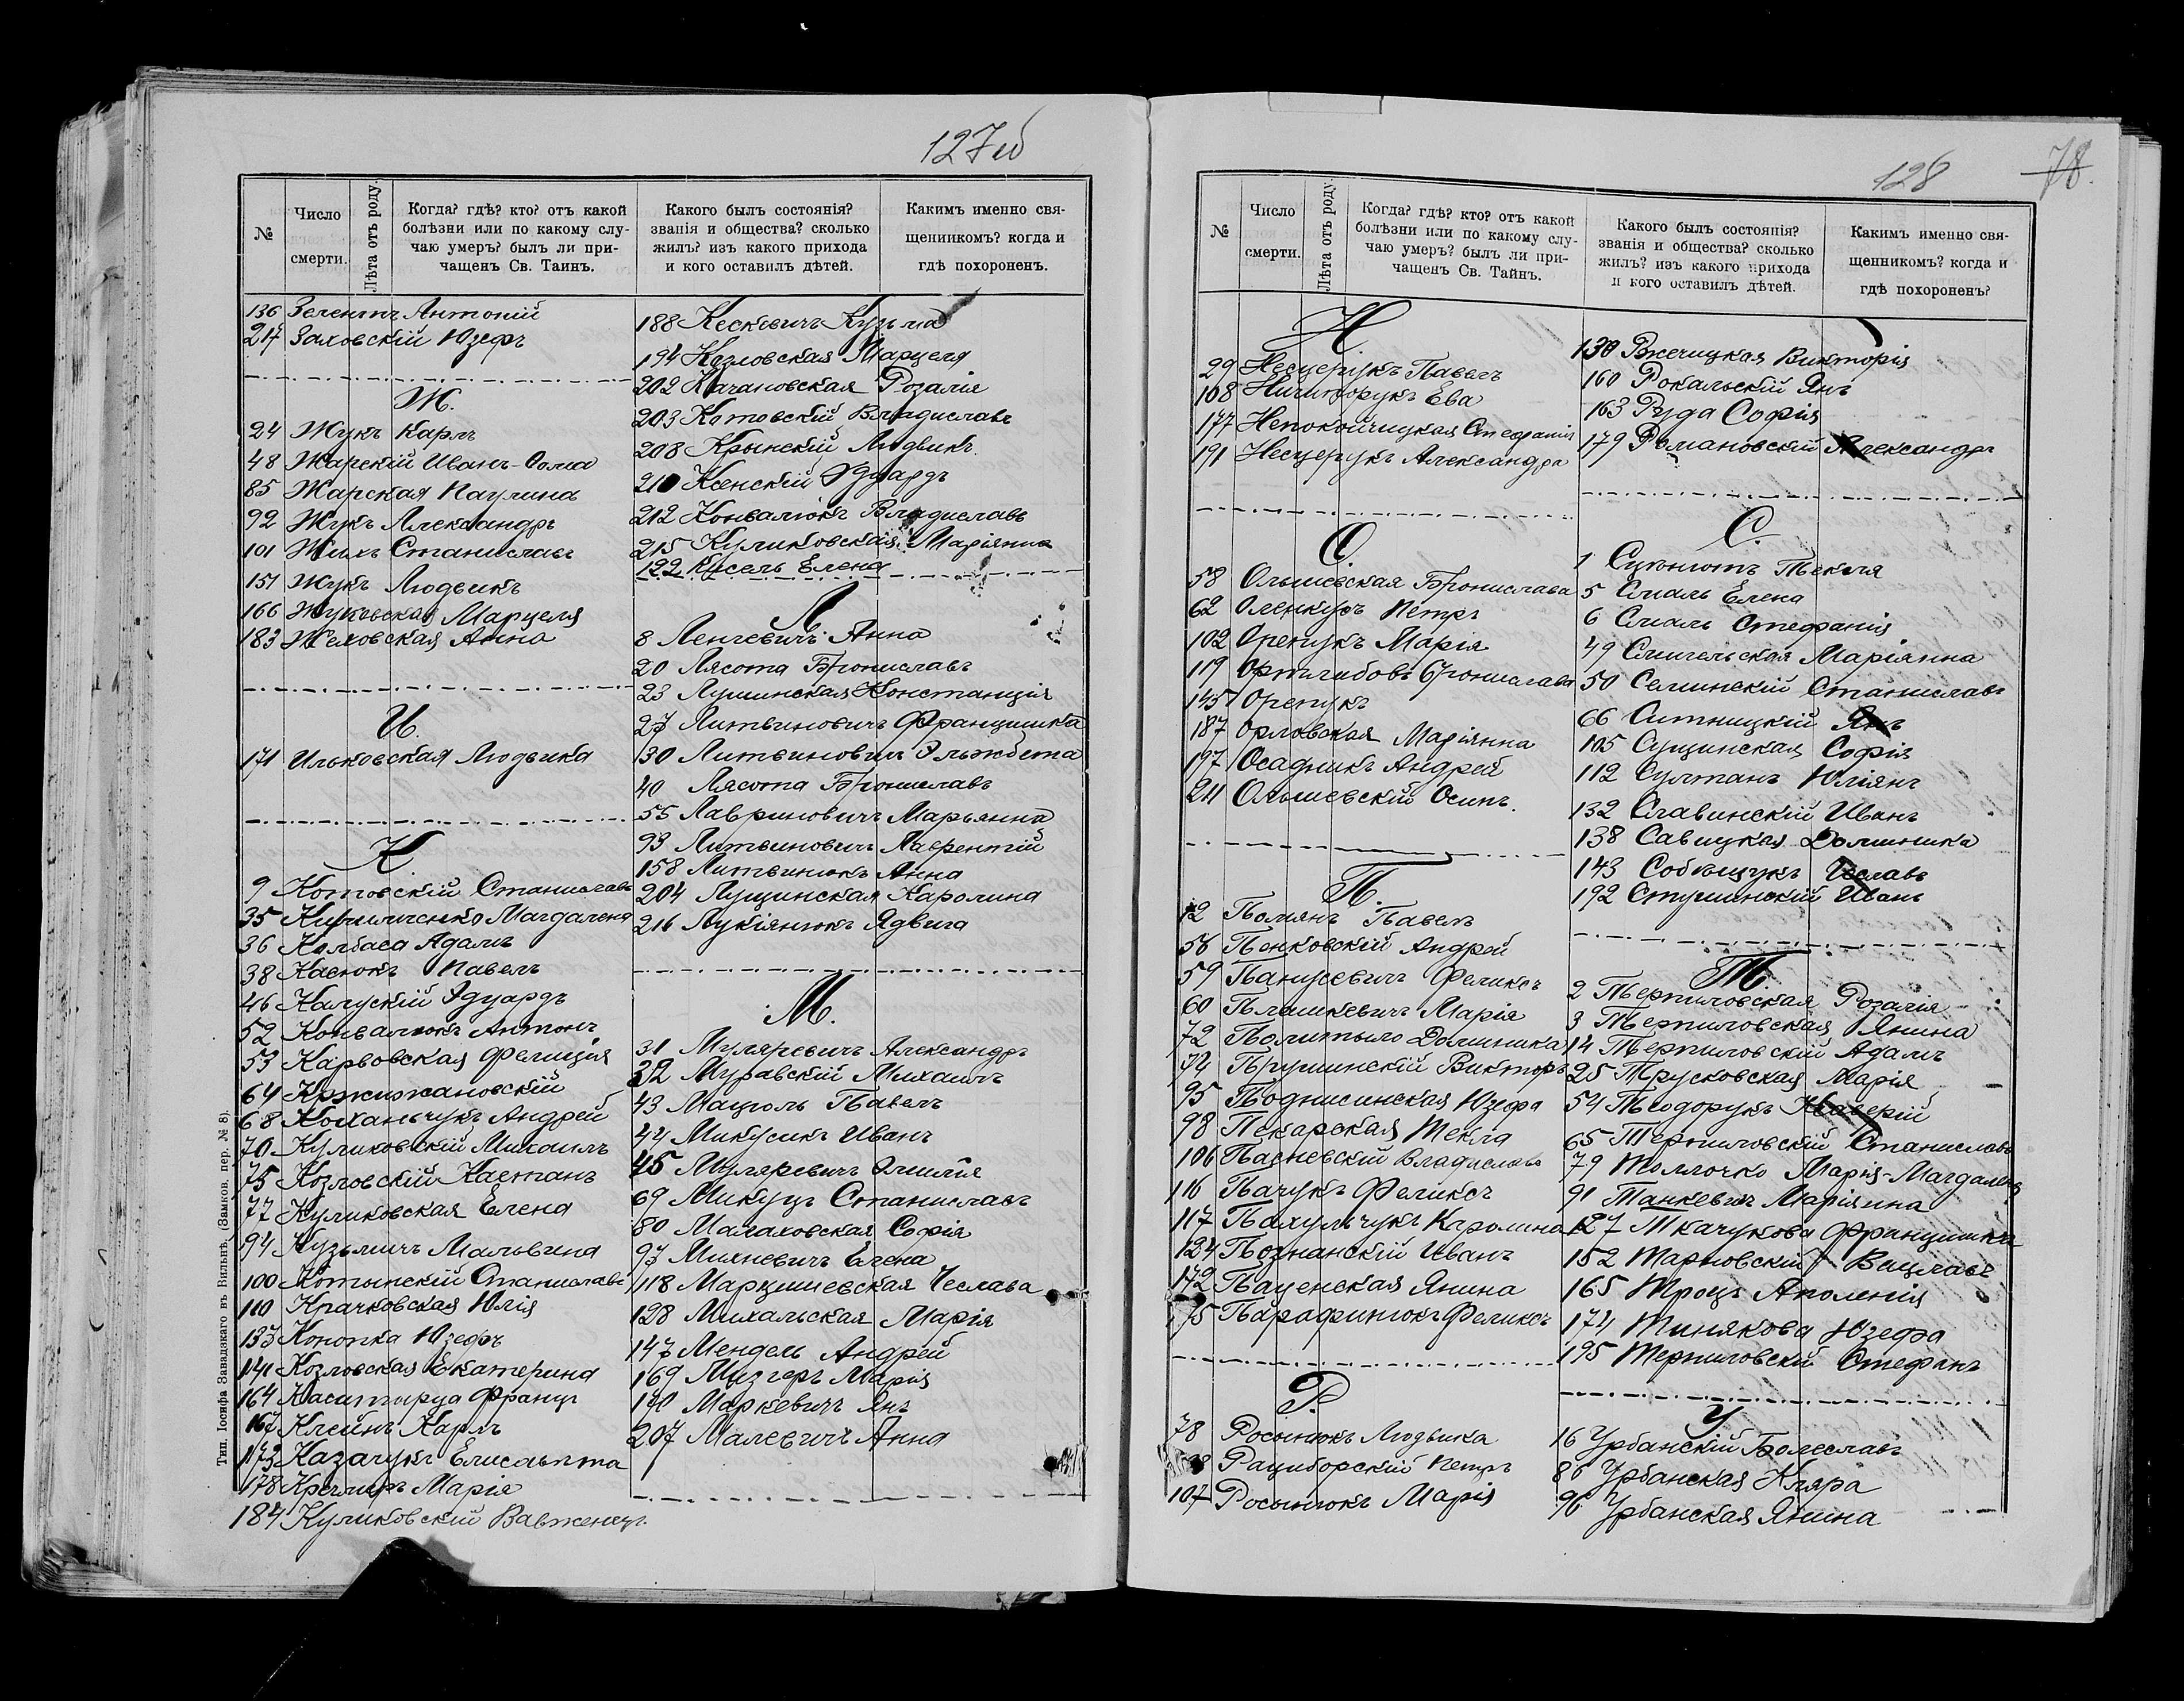 127об
№
Число смерти.
Лѣта отъ роду.
Когда? гдѣ? кто? отъ какой
болѣзни или по какому слу-
чаю умеръ? былъ ли при-
чащенъ Св. Таинъ.
Какого былъ состоянія?
званія и общества? сколько
жилъ? изъ какого прихода
и кого оставилъ дѣтей.
Какимъ именно свя-
щенникомъ? когда и
гдѣ похороненъ.
136 Антоній
217 Заховскій Юзефъ
Ж.
24 Жукъ Карлъ
48 Жарскій Иванъ-Фома
85 Жарская Паулина
92 Жукъ Александръ
101 Жихъ Станиславъ
151 Жукъ Людвикъ
166 Жуковская Марцеля
183 Желовская Анна
И.
171 Ильковская Людвика
К
9 Котовскій Станиславъ
35 Магдалена
36 Колбаса Адамъ
38 Касюкъ Павелъ
46 Калускій Эдуардъ
52 Конвалюкъ Антонъ
53 Карвовская Фелиція
64 Кржижановскій
68 Коханьчукъ Андрей
70 Куликовскій Михаилъ
75 Козловскій Каетанъ
77 Куликовская Елена
94 Кузьмичъ Мальвина
100 Котынскій Станиславъ
110 Крачковская Юлія
133 Конопка Юзефъ
141 Козловская Екатерина
164 Францъ
167 Клейнъ Карлъ
173 Казачукъ Елисавета
178 Кремиръ Марія
184 Куликовскій Вавженецъ.
188 Кескевичъ Кузьма
194 Козловская Марцеля
202 Качановская Розалія
203 Котовскій Владиславъ
208 Крынскій Людвикъ.
210 Ксенскій Эдуардъ
212 Конвалюкъ Владиславъ
215 Куликовская Маріянна
122 Кисель Елена
Л
8 Ленчевичъ Анна
20 Лясота Брониславъ
23 Лушинская Констанція
27 Литвиновичъ Францишка
30 Литвиновичъ Эльжбета
40 Лясота Брониславъ
55 Лавриновичъ Марьянна
93 Литвиновичъ Лаврентій
158 Литвинюкъ Анна
204 Лущинская Каролина
216 Лукіянюкъ Ядвига
М.
31 Муляревичъ Александръ
32 Муравскій Михаилъ
43 Мацюль Павелъ
44 Микусикъ Иванъ
45 Муляревичъ Эмилія
69 Микуцъ Станиславъ
80 Малаховская Софія
97 Михневичъ Елена
118 Марцишевская Чеслава
128 Михальская Марія
147 Мендель Андрей
169 Мизгеръ Марія
170 Маркевичъ Янъ
207 Малевичъ Анна
Тип. Іосифа Завадзкаго въ Вильнѣ. (Замков. пер. № 8).
128
78.
№
Число смерти.
Лѣта отъ роду.
Когда? гдѣ? кто? отъ какой
болѣзни или по какому слу-
чаю умеръ? былъ ли при-
чащенъ Св. Тайнъ.
Какого былъ состоянія?
званія и общества? сколько
жилъ? изъ какого прихода
и кого оставилъ дѣтей.
Какимъ именно свя-
щенникомъ? когда и
гдѣ похороненъ?
Н
29 Несцерукъ Павелъ
108 Ничипорукъ Ева
177 Непокойчицкая Стефанія
191 Несцерукъ Александра
О.
58 Ольшевская Бронислава
62 Оленкусъ Петръ
102 Орепукъ Марія
119 Ортлибовъ Брониславъ
145 Орепукъ
187 Орловская Маріянна
197 Осадникъ Андрей
211 Ольшевскій Осипъ.
П.
12 Помянъ Павелъ
56 Пенковскій Андрей
59 Панусевичъ Феликсъ
60 Плашкевичъ Марія
72 Политыло Доминика
74 Прушинскій Викторъ
95 Поднисинская Юзефа
98 Пекарская Текля
106 Пасневскій Владиславъ
116 Пачукъ Феликсъ
117 Пахульчукъ Каролина
124 Познанскій Иванъ
172 Паценская Янина
175 Парафинюкъ Феликсъ
Р.
78 Росинюкъ Людвика
Рациборскій Петръ
107 Росинюкъ Марія
130 Ржечицкая Викторія
160 Рокальскій Янъ
163 Руда Софія
179 Романовскій Александръ
С.
1 Текля
5 Смаль Елена
6 Смаль Стефанія
49 Смигельская Маріянна
50 Семинскій Станиславъ
66 Ситницкій Янъ
105 Сущинская Софія
112 Султанъ Юліянъ
132 Славинскій Иванъ
138 Савицкая Доминика
143 Собещукъ Чеславъ
192 Струминскій Иванъ
Т.
2 Терпиловская Розалія
3 Терпиловская Янина
14 Терпиловскій Адамъ
25 Трусковская Марія
54 Теодорукъ Ксаверій
65 Терпиловскій Станиславъ
79 Толлочко Марія-Магдалена
91 Танкевичъ Маріянна
127 Ткачукова Францишка
152 Тарновскій Вацлавъ
165 Троцъ Аполенія
174 Тинякова Юзефа
195 Терпиловскій Стефанъ
У
16 Урбанскій Болеславъ
86 Урбанская Кляра
96 Урбанская Янина